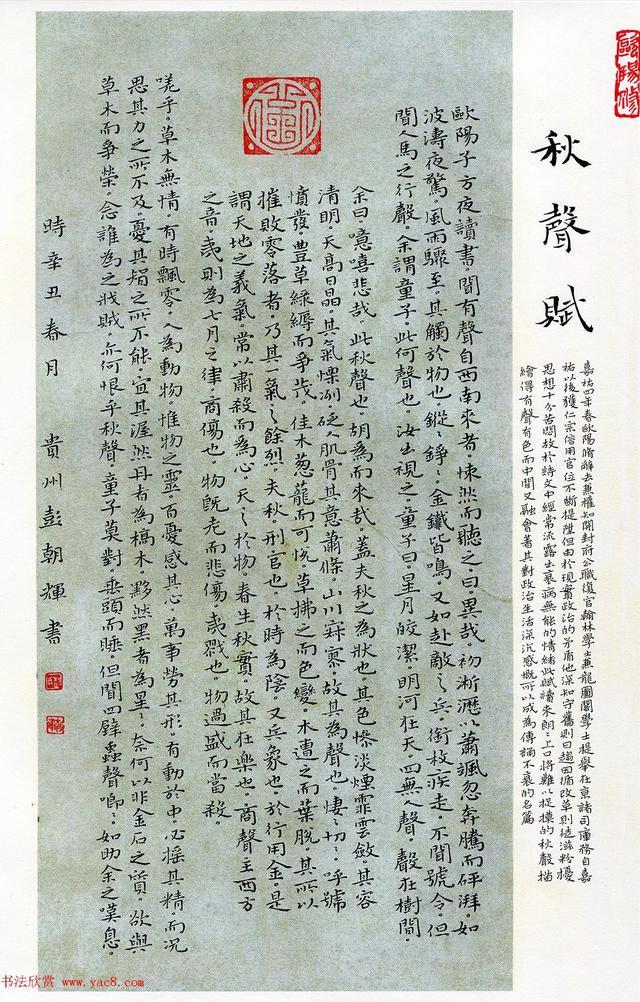 歐陽修
秋聲賦
嘉祐四年春歐陽脩辭去兼權知開封府公職復官翰林學士兼龍圖閣學士提舉在京諸司庫務自嘉
祐以後獲仁宗信用官位不斷提陞但由於現實政治的矛盾他深知守舊則日趨因循改革則徒滋紛擾
思想十分苦悶故於詩文中經常流露出衰病無能的情緒此賦讀來朗〻上口將難以捉摸的秋聲描
繪得有聲有色而中間又融會著其對政治生活深沉感慨所以成為傳誦不衰的名篇
歐陽子方夜讀書。聞有聲自西南來者。悚然而聽之。曰。異哉。初淅瀝以蕭颯忽奔騰而砰湃。如
波濤夜驚。風雨驟至。其觸於物也。鏦〻錚〻。金鐵皆鳴。又如赴敵之兵。銜枚疾走。不聞號令。但
聞人馬之行聲。余謂童子。此何聲也。汝出視之。童子曰。星月皎潔。明河在天。四無人聲。聲在樹間。
余曰。噫嘻悲哉。此秋聲也。胡為而來哉。蓋夫秋之為狀也。其色慘淡煙霏雲斂。其容
清明。天高日晶。其氣慄冽。砭人肌骨其意蕭條。山川寂寥。故其為聲也。悽〻切〻。呼號
憤發。豐草綠縟而爭茂。佳木蔥蘢而可悅。草拂之而色變。木遭之而葉脫。其所以
摧敗零落者。乃其一氣之餘烈。夫秋。刑官也。於時為陰。又兵象也。於行用金。是
謂天地之義氣。常以肅殺而為心。天之於物。春生秋實。故其在樂也。商聲主西方
之音。夷則為七月之律。商傷也。物既老而悲傷。夷戮也。物過盛而當殺。
嗟乎。草木無情。有時飄零。人為動物惟物之靈。百憂感其心。萬事勞其形。有動於中。必搖其精。而況
思其力之所不及。憂其智之所不能。宜其渥然丹者為槁木。黟然黑者為星〻。奈何以非金石之質。欲與
草木而爭榮。念誰為之戕賊。亦何恨乎秋聲。童子莫對。垂頭而睡。但聞四壁蟲聲唧〻。如助余之嘆息。
時辛丑春月 貴州彭朝輝書
书法欣赏 www.yac8.com